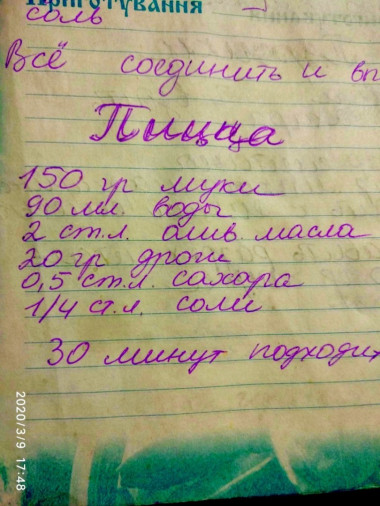 Приготування
соль
Всё соединить и вы
Пицца
150 гр муки
90 мл. воды
2 ст.л. олив. масла
20 гр дрожи
0,5 ст.л. сахара
1/4 ст.л. соли
30 минут подходит
2020/3/9 17:48